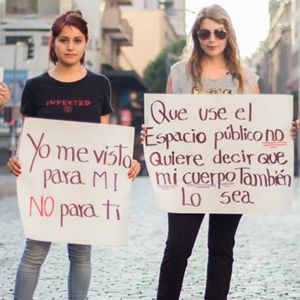 INFECTED
Yo me visto
para MI
NO para ti
Que use el
Espacio público no
Quiere decir que
mi cuerpo También
Lo sea